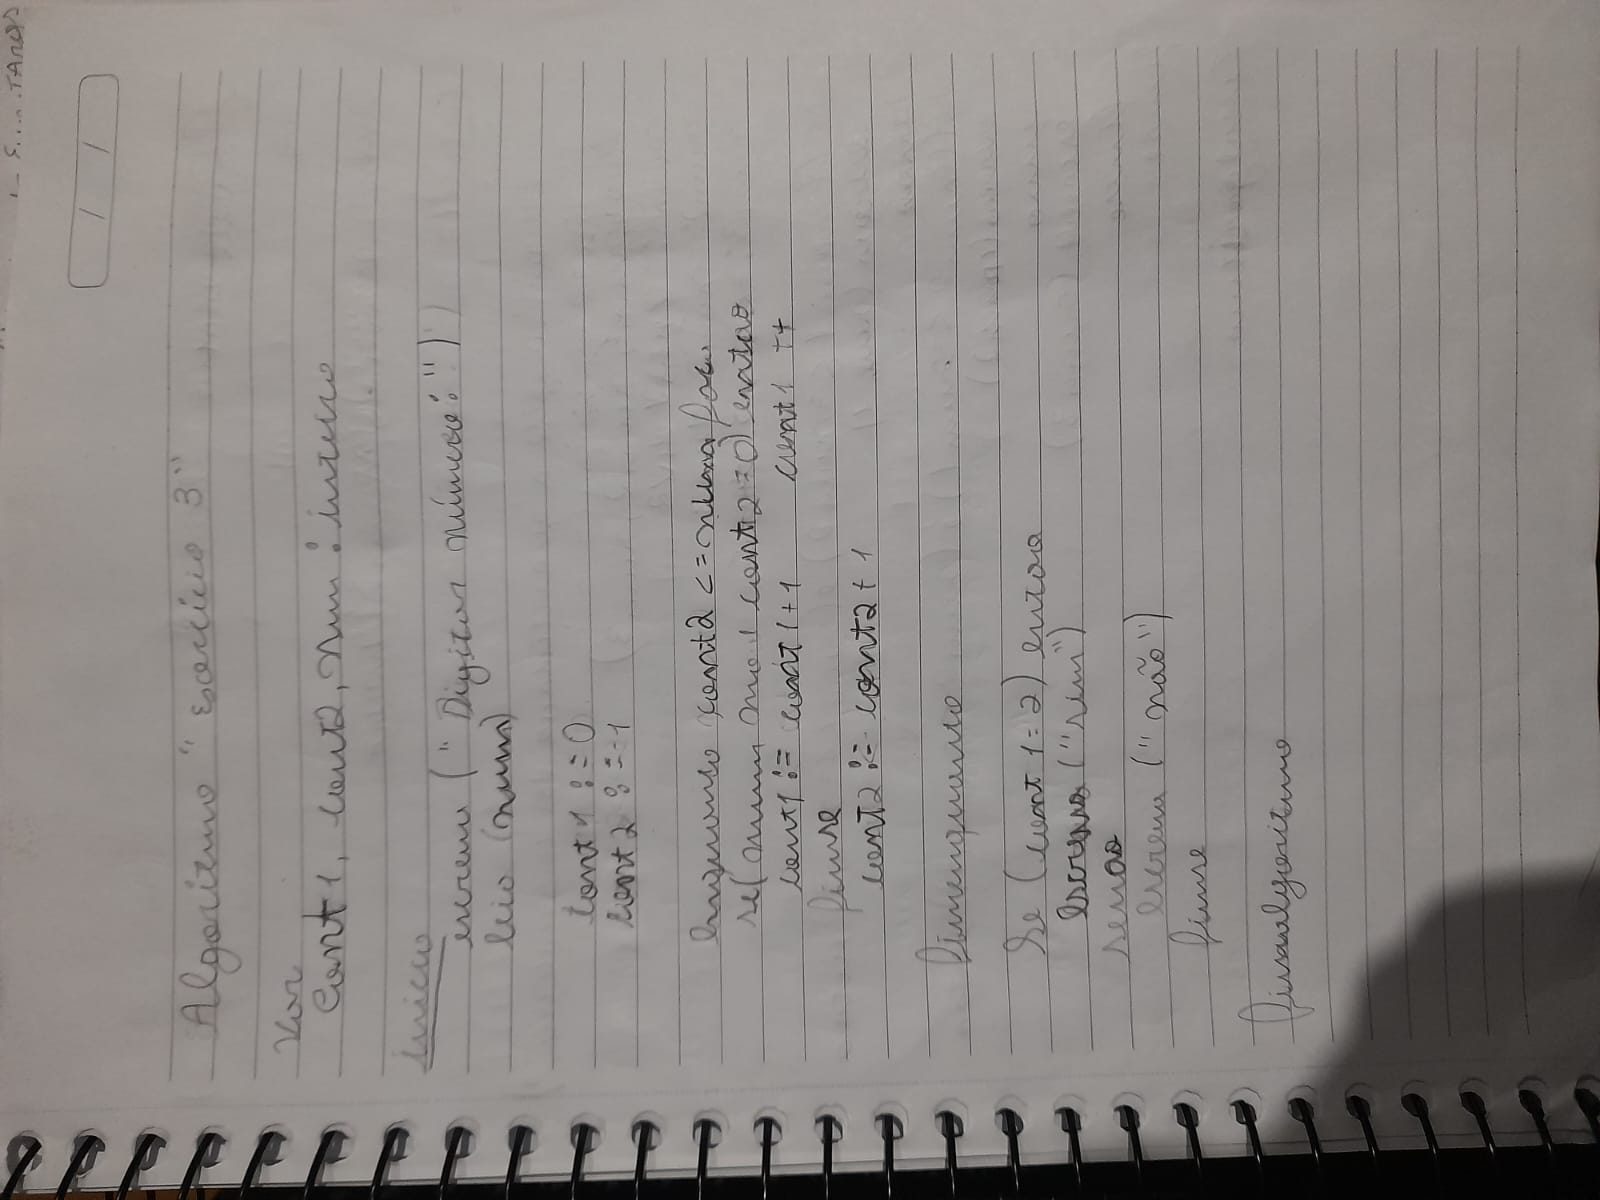 Algoritmo "exercício 3"
Var
Cont1, cont2, num : inteiro
inicio
escreva ("Digitar número:")
leia (num)
cont1 := 0
cont2 := 1
enquanto cont2 <= num faca
se(num mod cont2 = 0) entao
cont1 := cont1+1 cont1 ++
fimse
cont2 := cont2+1
fimenquanto
Se (cont1 = 2) entao
escreva ("sim")
senao
escreva ("não")
fimse
fimalgoritmo